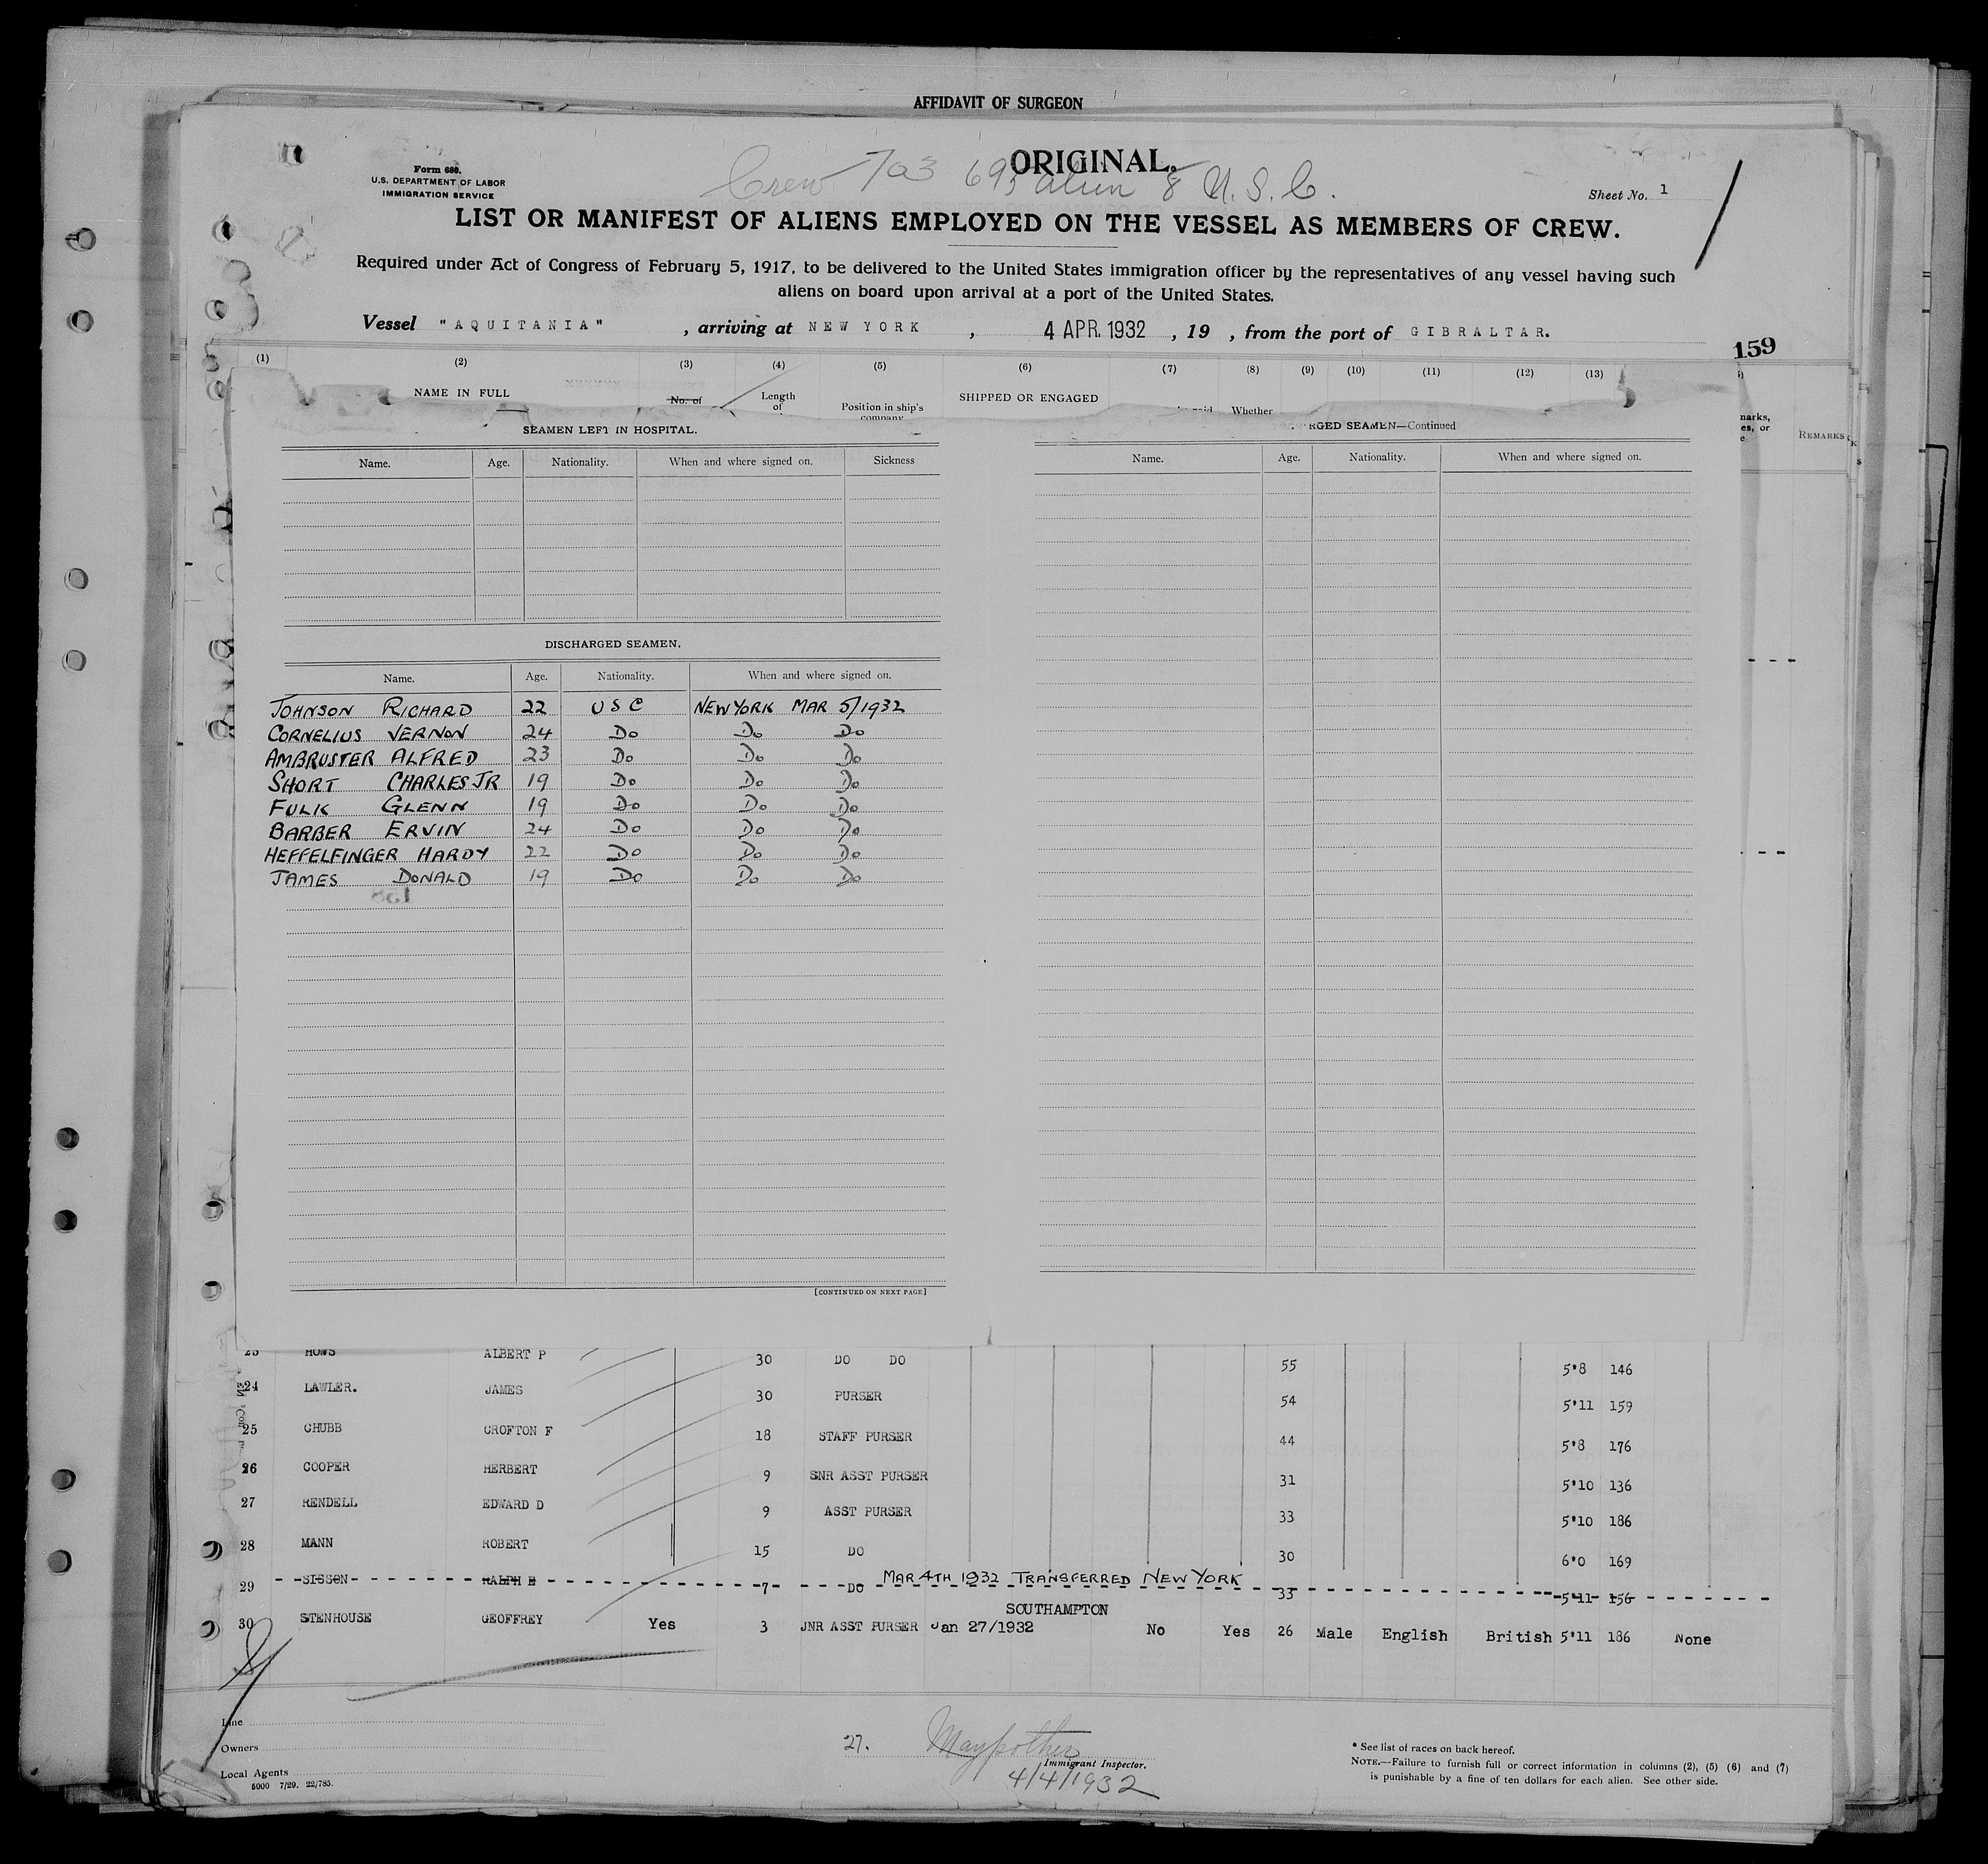 AFFIDAVIT OF SURGEON
ORIGINAL.
Form 680.
U.S. DEPARTMENT OF LABOR
IMMIGRATION SERVICE
Crew 703 695 alien 8 U.S.C.
Sheet No. 1
LIST OR MANIFEST OF ALIENS EMPLOYED ON THE VESSEL AS MEMBERS OF CREW.
Required under Act of Congress of February 5, 1917, to be delivered to the United States immigration officer by the representatives of any vessel having such
aliens on board upon arrival at a port of the United States.
Vessel "AQUITANIA", arriving at NEW YORK, 4 APR. 1932, 19 , from the port of GIBRALTAR.
159
(1) (2) (3) (4) (5) (6) (7) (8) (9) (10) (11) (12) (13)
NAME IN FULL No. of Length of Position in ship's company SHIPPED OR ENGAGED Whether
REMARKS
SEAMEN LEFT IN HOSPITAL.
Name. Age. Nationality. When and where signed on. Sickness
RGED SEAMEN—Continued
Name. Age. Nationality. When and where signed on.
DISCHARGED SEAMEN.
Name. Age. Nationality. When and where signed on.
JOHNSON RICHARD 22 USC NEW YORK MAR 5/1932
CORNELIUS VERNON 24 Do Do Do
AMBRUSTER ALFRED 23 Do Do Do
SHORT CHARLES JR 19 Do Do Do
FULK GLENN 19 Do Do Do
BARBER ERVIN 24 Do Do Do
HEFFELFINGER HARDY 22 Do Do Do
JAMES DONALD 19 Do Do Do
[CONTINUED ON NEXT PAGE]
23 HOWS ALBERT P 30 DO DO 55 5'8 146
24 LAWLER. JAMES 30 PURSER 54 5'11 159
25 CHUBB CROFTON F 18 STAFF PURSER 44 5'8 176
26 COOPER HERBERT 9 SNR ASST PURSER 31 5'10 136
27 RENDELL EDWARD D 9 ASST PURSER 33 5'10 186
28 MANN ROBERT 15 DO 30 6'0 169
29 SISSON RALPH E 7 DO MAR 4TH 1932 TRANSFERRED NEW YORK 33 5'11 156
SOUTHAMPTON
30 STENHOUSE GEOFFREY Yes 3 JNR ASST PURSER Jan 27/1932 No Yes 26 Male English British 5'11 186 None
Line
Owners
Local Agents
5000 7/29. 22/785.
27.
Immigrant Inspector.
4/4/1932
* See list of races on back hereof.
NOTE.—Failure to furnish full or correct information in columns (2), (5) (6) and (7)
is punishable by a fine of ten dollars for each alien. See other side.